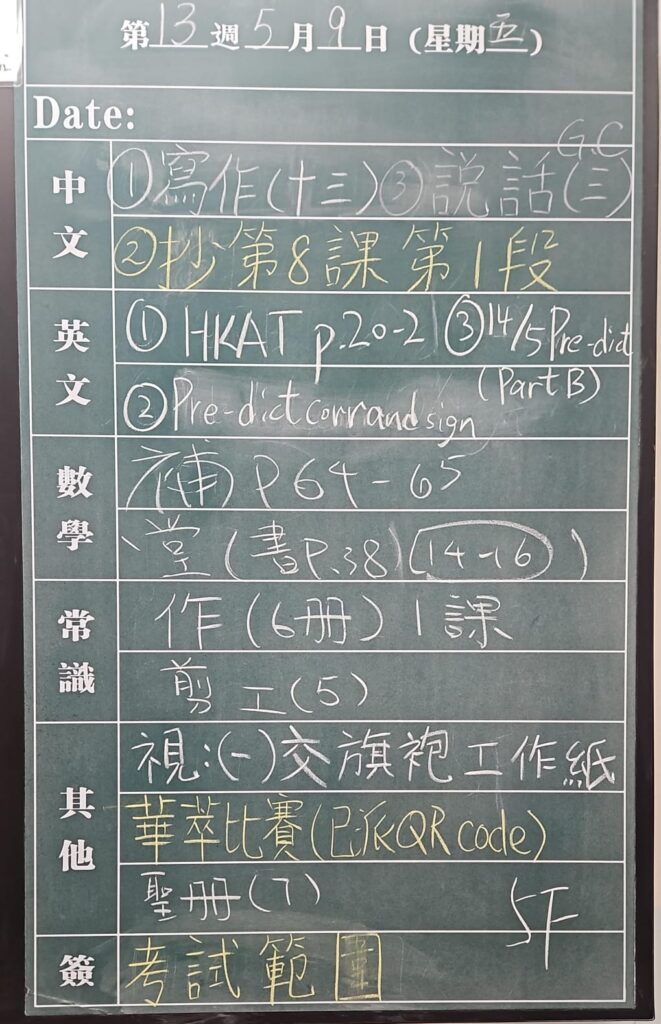 第13週5月9日(星期五)
Date:
G.C
中文
①寫作(十三)③説話(三)
②抄第8課第1段
英文
①HKAT p.20-21 ③14/5 Pre-dict
(Part B)
②Pre-dict corr and sign
數學
補P64-65
堂(書P.38)(14-16)
常識
作(6册)1課
剪工(5)
其他
視:(一)交旗袍工作紙
華萃比賽(已派QR code)
聖册(7)
5F
簽
考試範圍